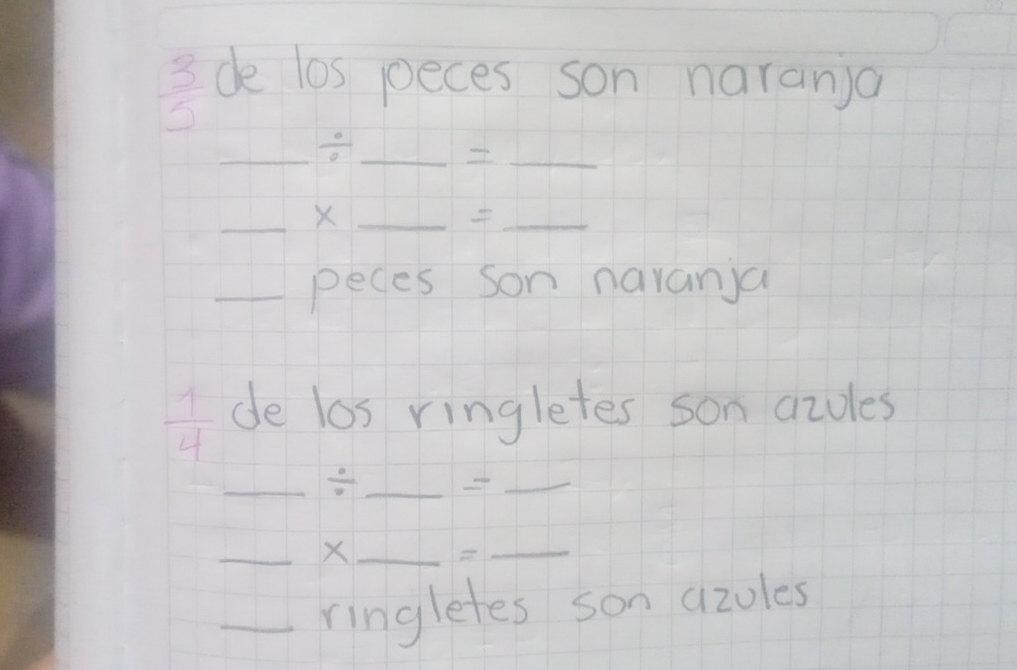 3/5 de los peces son naranja
___ ÷ ___ = ___
___ × ___ = ___
___ peces son naranja
1/4 de los ringletes son azules
___ ÷ ___ = ___
___ × ___ = ___
___ ringletes son azules